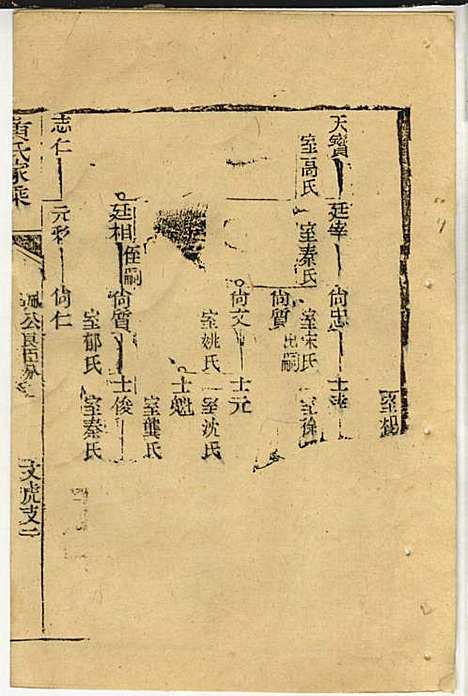 室楊
天寶 廷宰 尚忠 士
室高氏 室秦氏 室宋氏 室徐
尚質 出嗣
尚文 士元
室姚氏 室沈氏
士魁
廷相 侄嗣 尚質 士俊
室龔氏
室郁氏 室秦氏
志仁 元彩 尚仁
黄氏家乘
公良臣分 文虎支二